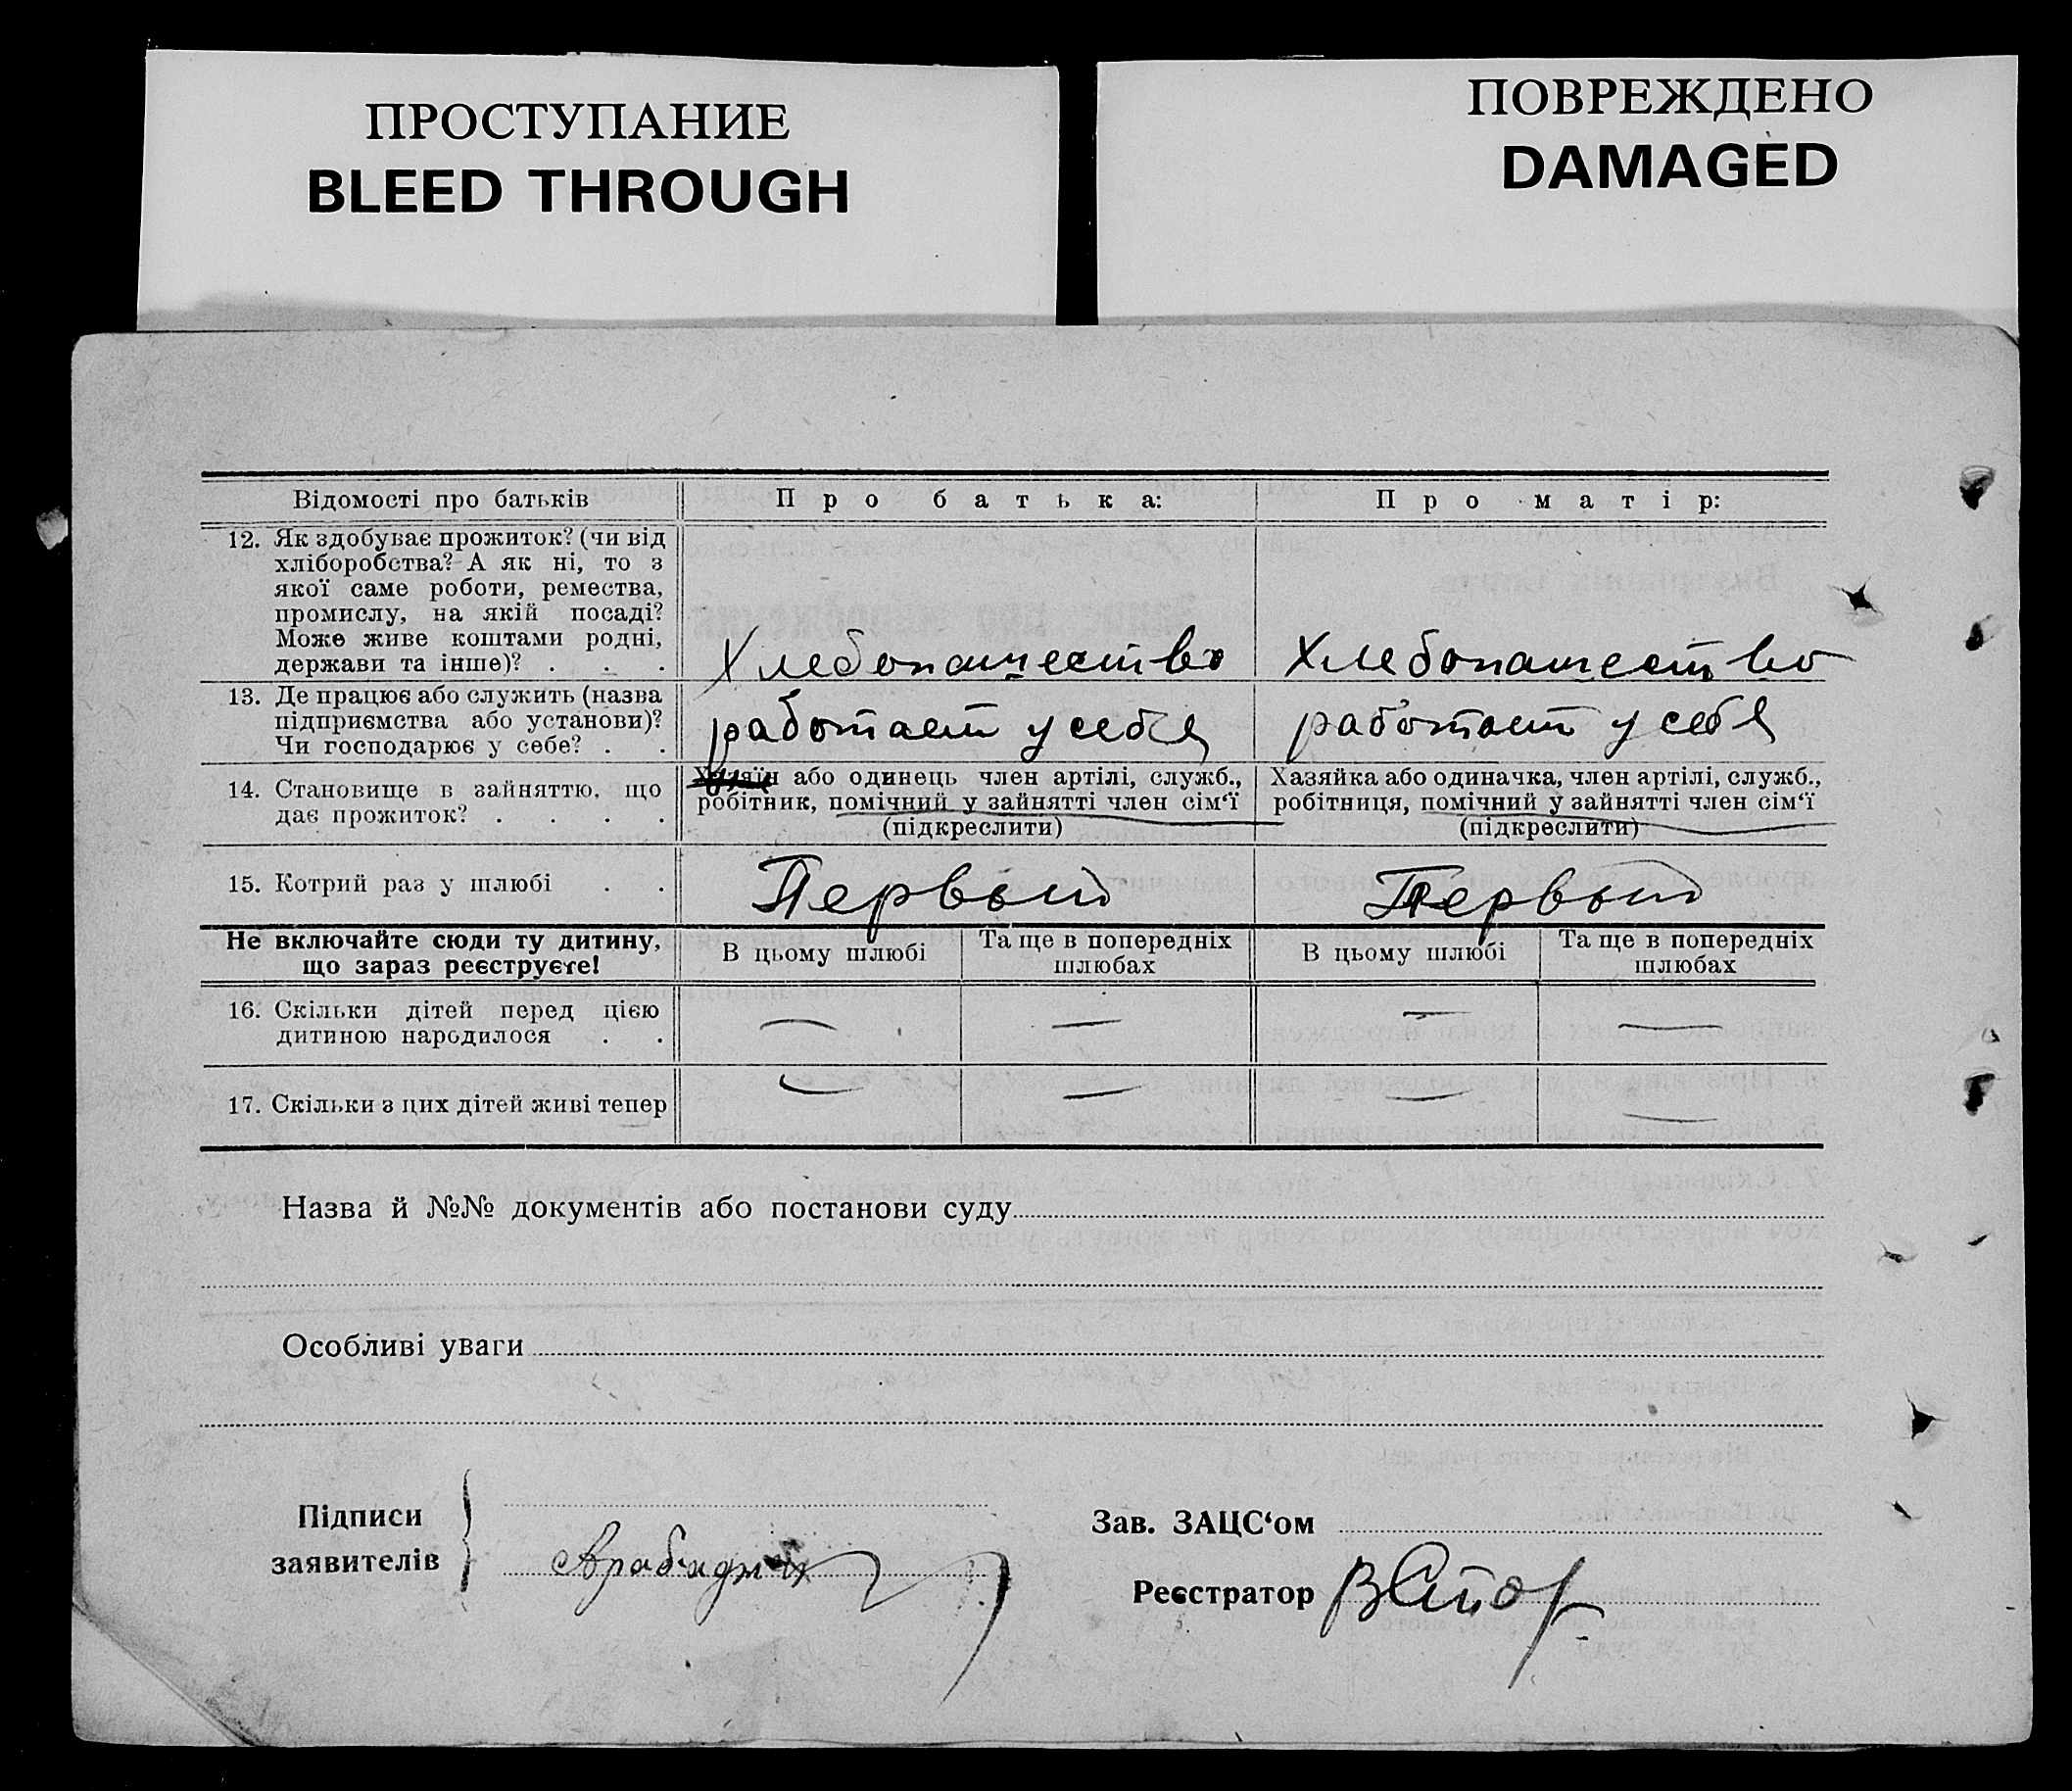 ПРОСТУПАНИЕ
BLEED THROUGH
ПОВРЕЖДЕНО
DAMAGED
Відомості про батьків
Про батька:
Про матір:
12. Як здобуває прожиток? (чи від
хліборобства? А як ні, то з
якої саме роботи, ремества,
промислу, на якій посаді?
Може живе коштами родні,
держави та інше)? . . .
Хлебопашество
Хлебопашество
13. Де працює або служить (назва
підприємства або установи)?
Чи господарює у себе? . .
работает у себя
работает у себя
14. Становище в зайняттю, що
дає прожиток? . . . .
Хазяїн або одинець член артілі, служб.,
робітник, помічний у зайнятті член сім‘ї
(підкреслити)
Хазяйка або одиначка, член артілі, служб.,
робітниця, помічний у зайнятті член сім‘ї
(підкреслити)
15. Котрий раз у шлюбі . .
Первый
Первый
Не включайте сюди ту дитину,
що зараз реєструєте!
В цьому шлюбі
Та ще в попередніх
шлюбах
В цьому шлюбі
Та ще в попередніх
шлюбах
16. Скільки дітей перед цією
дитиною народилося . .
— — — —
17. Скільки з цих дітей живі тепер
— — — —
Назва й №№ документів або постанови суду
Особливі уваги
Підписи
заявителів
Зав. ЗАЦС‘ом
Реєстратор